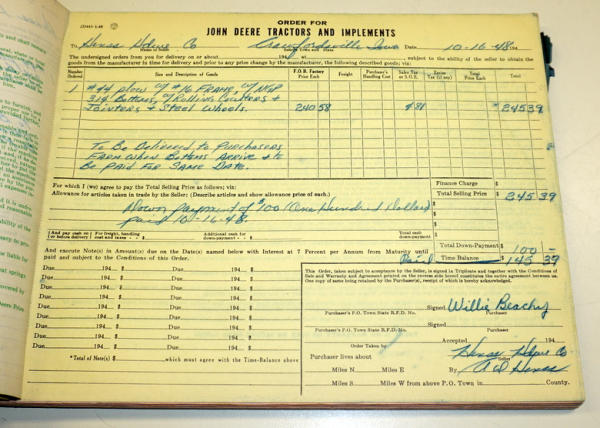 ORDER FOR
JOHN DEERE TRACTORS AND IMPLEMENTS
To Henss Hdwe Co Crawfordsville Iowa Date 10-16-48 194
The undersigned orders from you for delivery on or about 194 at subject to the ability of the seller to obtain
goods from the manufacturer in time for delivery and prior to any price change by the manufacturer, the following described goods; via:
Number Ordered Size and Description of Goods F.O.B. Factory Price Each Freight Purchaser's Handling Cost Sales Tax Excise Tax (if any) Total Price Each Total
1 #44 plow w/ #16 FRAME, w/
Bottoms, w/ Rolling Coulters +
Jointers + Steel Wheels. 240 58 4 81 $ 245 39
To Be Delivered to Purchasers
Farm when Bottoms Arrive + to
Be Paid For Same Date.
For which I (we) agree to pay the Total Selling Price as follows; via:
Allowance for articles taken in trade by the Seller; (Describe articles and show allowance price of each.)
Finance Charge $
Total Selling Price $ 245 39
Down payment of $100 (One Hundred Dollars)
paid 10-16-48
And pay cash on or before delivery For freight, handling cost and taxes $ Additional cash for down-payment $ Total cash down-payment
Total Down-Payment $ 100 -
And execute Note(s) in Amount(s) due on the Date(s) named below with Interest at 7 Percent per Annum from Maturity until
paid and subject to the Conditions of this Order.
Paid Time Balance $ 145 39
Due 194 $ Due 194 $
Due 194 $ Due 194 $
Due 194 $ Due 194 $
Due 194 $ Due 194 $
Due 194 $ Due 194 $
Due 194 $ Due 194 $
Due 194 $ Due 194 $
Due 194 $ Due 194 $
*Total of Note(s) $ which must agree with the Time-Balance above
This Order, taken subject to acceptance by the Seller, is signed in Triplicate and together with the Conditions of
Sale and Warranty and Agreement printed on the reverse side hereof constitutes the entire agreement between us.
One copy of same being retained by the Purchaser(s), receipt of which is hereby acknowledged.
Signed Willis Beachy
Purchaser's P.O. Town State R.F.D. No. Purchaser
Signed
Purchaser's P.O. Town State R.F.D. No. Purchaser
Order Taken by Accepted 194
Henss Hdwe Co
Purchaser lives about Seller
Miles N Miles E By A D Henss
Miles S Miles W from above P.O. Town in County.